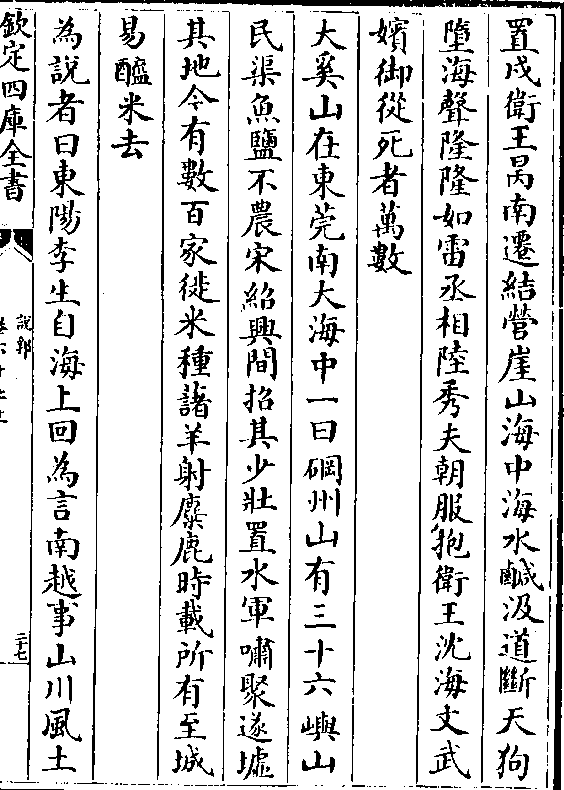 置戍衛王昺南遷結營崖山海中海水鹹汲道斷天狗
墮海聲隆隆如雷丞相陸秀夫朝服抱衛王沈海文武
嬪御從死者萬數
大奚山在東莞南大海中一曰碙州山有三十六嶼山
民業魚鹽不農宋紹興間招其少壯置水軍嘯聚遂墟
其地今有數百家徙米種藷羊射麋鹿時載所有至城
易醯米去
為說者曰東陽李生自海上回為言南越事山川風土
欽定四庫全書
說郛
二十七